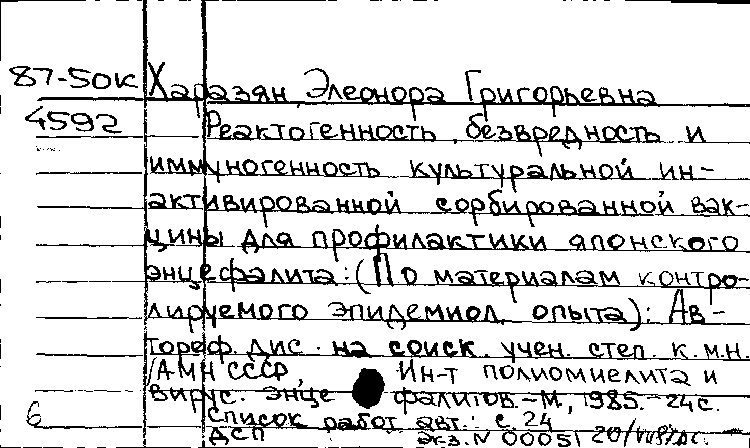 87-50к Харазян, Элеонора Григорьевна
4592 Реактогенность, безвредность и
иммуногенность культуральной ин-
активированной сорбированной вак-
цины для профилактики японского
энцефалита: (По материалам контро-
лируемого эпидемиол. опыта): Ав-
тореф. дис. на соиск. учен. степ. к.м.н.
/АМН СССР, Ин-т полиомиелита и
вирус. энцефалитов. - М, 1985. - 24с.
6 Список работ авт.: с. 24
ДСП экз. N 00051